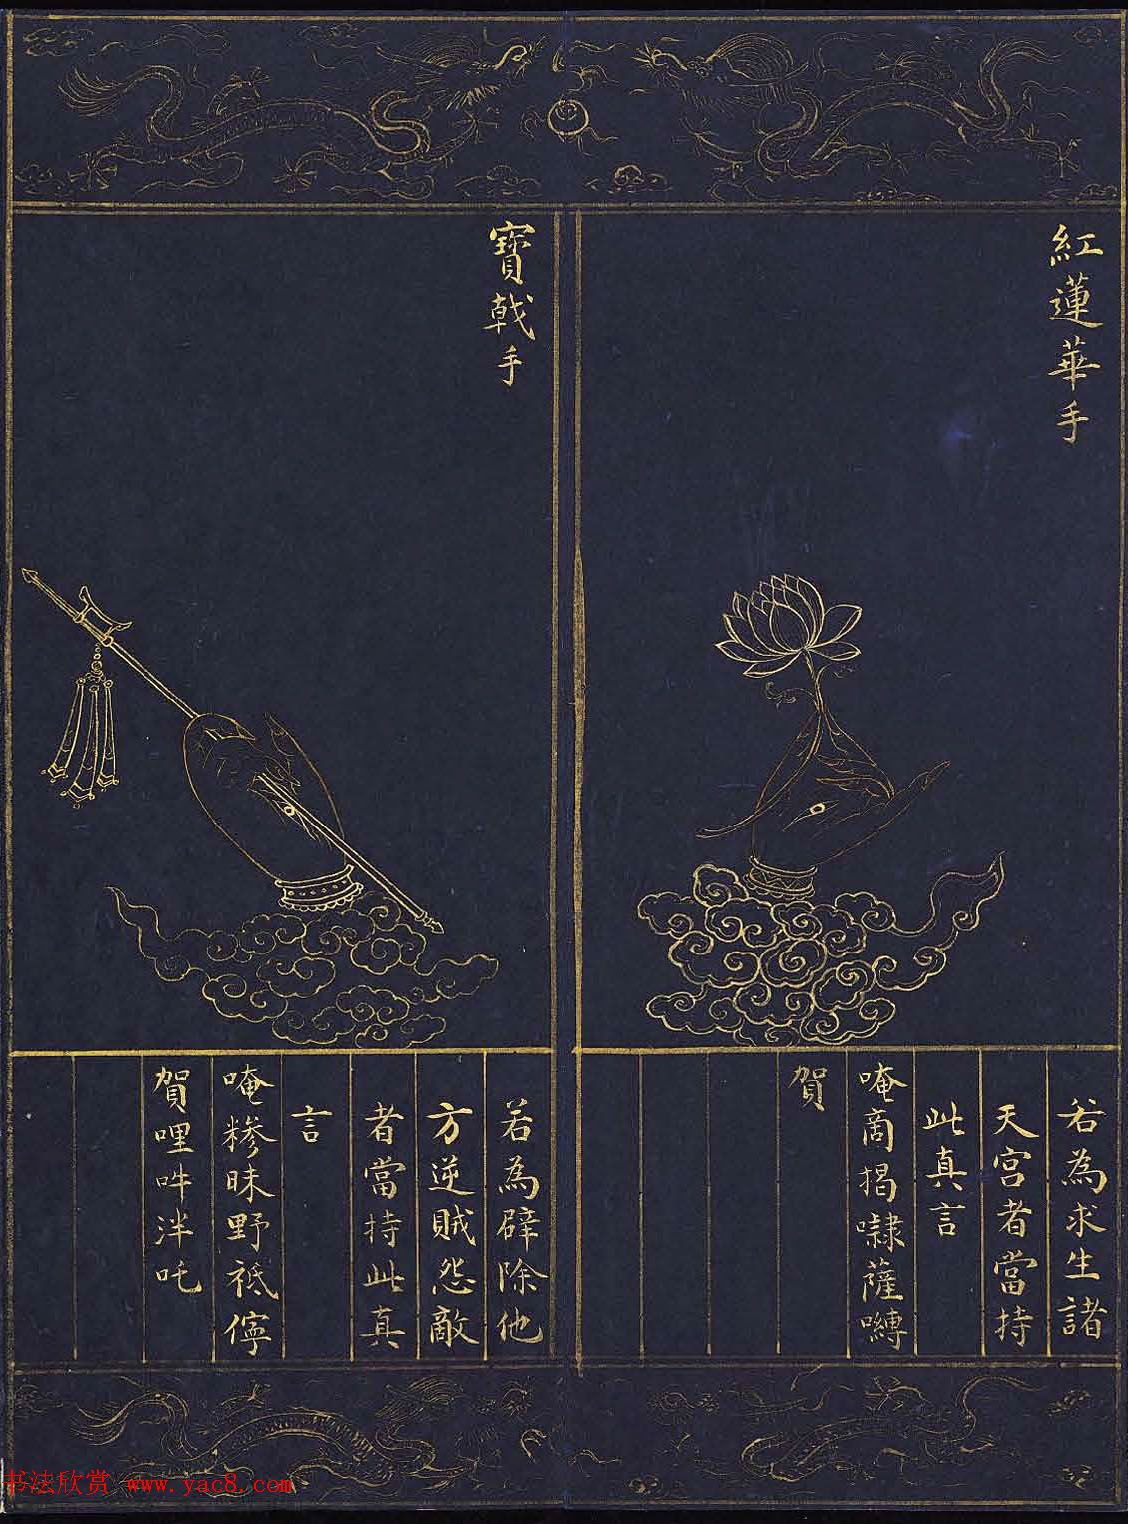 紅蓮華手
若為求生諸
天宮者當持
此真言
唵商揭㘑薩嚩
賀
寶戟手
若為辟除他
方逆賊怨敵
者當持此真
言
唵糝昧野祗儜
賀哩吽泮吒
书法欣赏 www.yac8.com